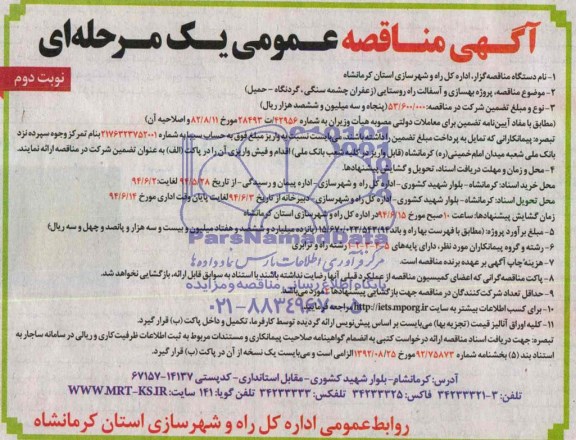 آگهی مناقصه عمومی یک مرحله‌ای
نوبت دوم
۱- نام دستگاه مناقصه‌گزار: اداره کل راه و شهرسازی استان کرمانشاه
۲- موضوع مناقصه: پروژه بهسازی و آسفالت راه روستایی (زعفران چشمه سنگی، گردنگاه - حمیل)
۳- نوع و مبلغ تضمین شرکت در مناقصه: ۵۳/۶۰۰/۰۰۰ (پنجاه و سه میلیون و ششصد هزار ریال)
(مطابق با مفاد آیین‌نامه تضمین برای معاملات دولتی مصوبه هیأت وزیران به شماره ۴۲۹۵۶/ت ۲۸۴۹۳ مورخ ۸۲/۸/۱۱ و اصلاحیه آن)
تبصره: پیمانکارانی که تمایل به پرداخت مبلغ تضمین را داشته باشند می‌بایست نسبت به واریز مبلغ فوق به حساب سیبا به شماره ۲۱۷۶۳۲۳۷۵۲۰۰۱ بنام تمرکز وجوه سپرده نزد
بانک ملی شعبه میدان امام‌خمینی(ره) کرمانشاه (قابل واریز در کلیه شعب بانک ملی) اقدام و فیش واریزی آن را در پاکت (الف) به عنوان تضمین شرکت در مناقصه ارائه نمایند.
۴- محل و زمان و مهلت دریافت اسناد، تحویل و گشایش پیشنهادها:
محل خرید اسناد: کرمانشاه - بلوار شهید کشوری - اداره کل راه و شهرسازی - اداره پیمان و رسیدگی - از تاریخ ۹۴/۵/۲۸ لغایت: ۹۴/۶/۲
محل تحویل اسناد: کرمانشاه - بلوار شهید کشوری - اداره کل راه و شهرسازی - دبیرخانه از تاریخ ۹۴/۶/۳ لغایت پایان وقت اداری مورخ ۹۴/۶/۱۴
زمان گشایش پیشنهادها: ساعت ۱۰ صبح مورخ ۹۴/۶/۱۵ در اداره کل راه و شهرسازی استان کرمانشاه
۵- مبلغ برآورد پروژه: (مطابق با فهرست بها راه و باند ۹۴) ۱۵/۶۷۰/۰۲۳/۵۴۳ (پانزده میلیارد و ششصد و هفتاد میلیون و بیست و سه هزار و پانصد و چهل و سه ریال)
۶- رشته و گروه پیمانکاران مورد نظر: دارای پایه‌های ۵-۴-۳-۲-۱ رشته راه و ترابری
۷- هزینه چاپ آگهی بر عهده برنده مناقصه است.
۸- پاکت مناقصه‌گرانی که اعضای کمیسیون مناقصه از عملکرد قبلی آنها رضایت نداشته باشند با استناد به سوابق قابل ارائه، بازگشایی نخواهد شد.
۹- حداقل تعداد شرکت‌کنندگان در مناقصه جهت بازگشایی پیشنهادها ۲ مورد می‌باشد
۱۰- برای کسب اطلاعات بیشتر به سایت http://iets.mporg.ir مراجعه فرمایید.
۱۱- کلیه اوراق آنالیز قیمت (تجزیه بها) می‌بایست بر اساس پیش‌نویس ارائه گردیده توسط کارفرما، تکمیل و داخل پاکت (ب) قرار گیرد.
تبصره: جهت دریافت اسناد مناقصه ارائه درخواست کتبی به انضمام گواهینامه صلاحیت پیمانکاری و مستندات مربوط به ثبت اطلاعات ظرفیت کاری و ریالی در سامانه ساجار به
استناد بند (۵) بخشنامه شماره ۹۲/۷۵۸۷۳ مورخ ۱۳۹۲/۰۸/۲۵ الزامی است و می‌بایست یک نسخه از آن در پاکت (ب) قرار گیرد.
آدرس: کرمانشاه- بلوار شهید کشوری- مقابل استانداری- کدپستی ۱۴۱۳۷-۶۷۱۵۷
تلفن: ۳-۳۴۲۳۳۳۲۱ فاکس: ۳۴۲۳۳۳۲۵ تلفکس: ۳۴۲۳۳۳۳۳ تلفن گویا: ۱۴۱ سایت: WWW.MRT-KS.IR
روابط عمومی اداره کل راه و شهرسازی استان کرمانشاه
ParsNamadData
مرکز فرآوری اطلاعات پارس نماد داده‌ها
پایگاه اطلاع رسانی مناقصه و مزایده
۰۲۱-۸۸۳۴۹۶۷۰-۵